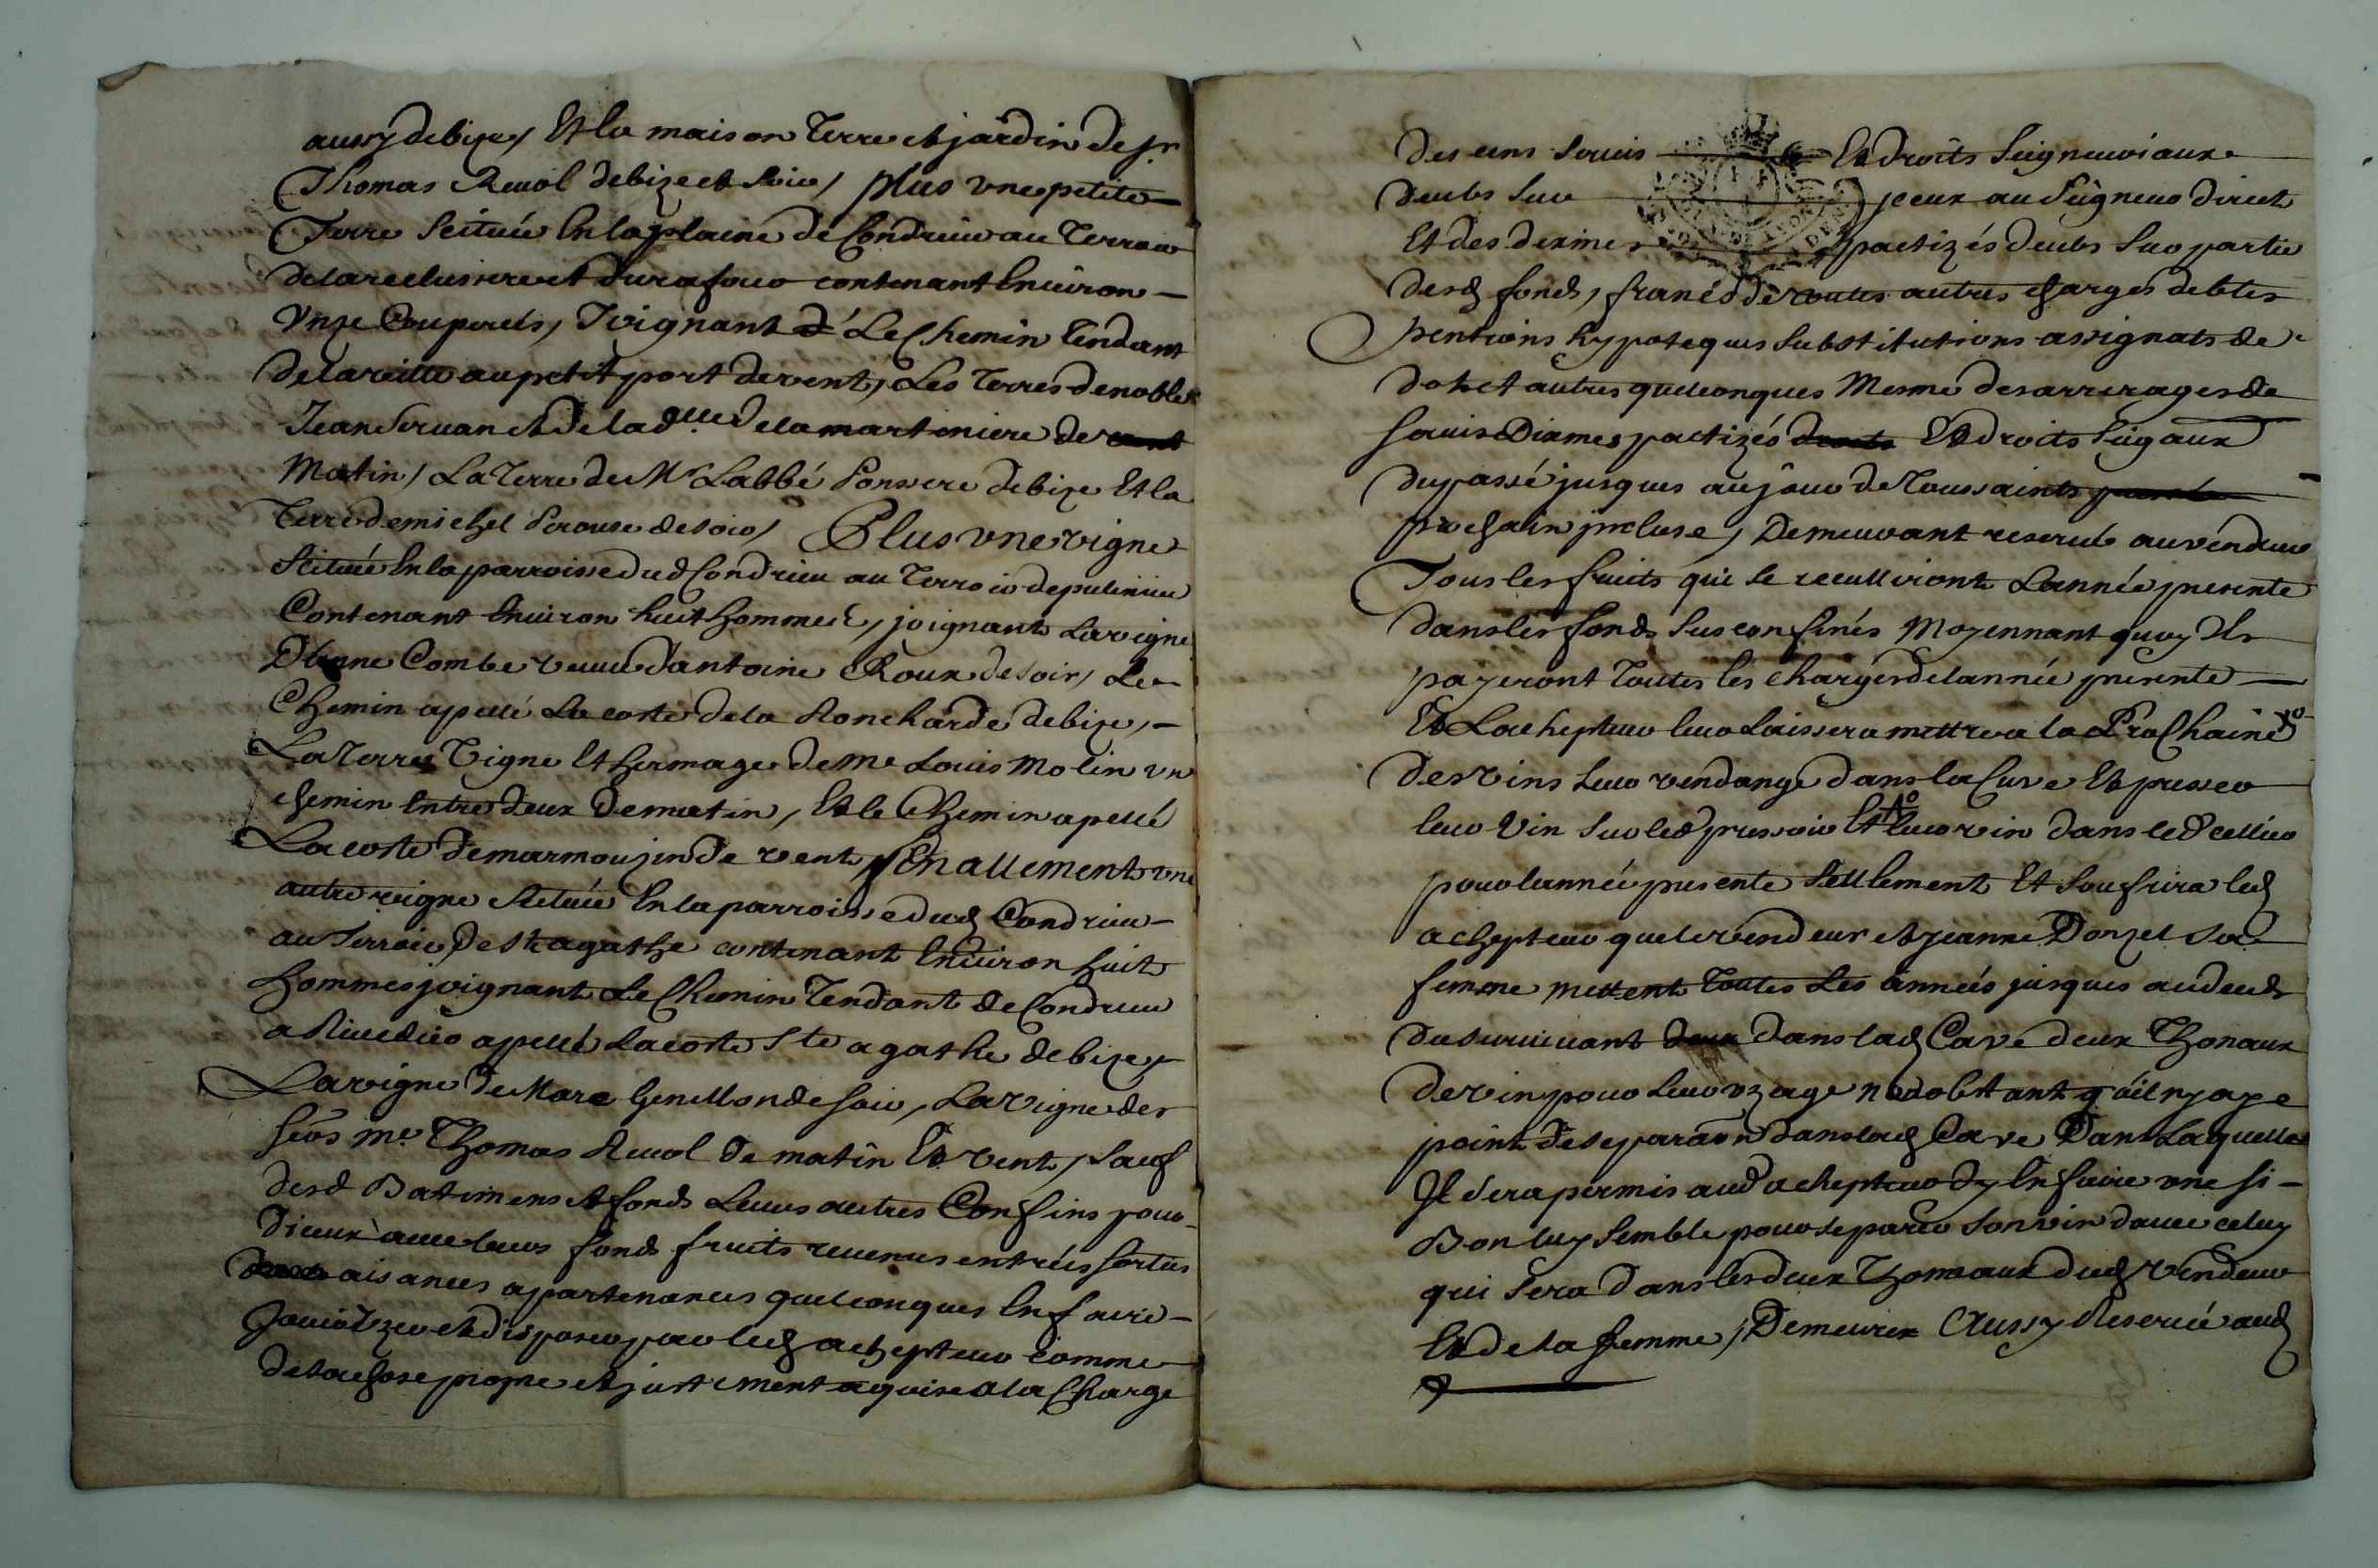 aussy debize, Et la maison Terre et jardin de sr
Thomas Revol debize et soir, plus vne petite
Terre Scituée En la plaine de Condrieu au Terroir
de la reclusiere et durafour contenant Enuiron
Vnze Couperets, Joignant Le Chemin Tendant
de la ville au petit port de vent, Les Terres de noble
Jean Seruan et de la dlle de la martiniere de
Matin, La Terre de Mr Labbé Ponsere debize Et la
Terre de michel Perouse de soir, Plus vne vigne
Scituée En la parroisse dud Condrieu au Terroir de
Contenant Enuiron huit hommeé, joignant La vigne
Combe veuue dantoine Roux de soir, Le
Chemin apellé La coste de la Roncharde debize,
La Terre Vigne Et hermage de me Louis Molin vn
chemin Entre deux De matin, Et le Chemin apellé
La coste de marmouzin de vent, Enallement vne
autre vigne Scituée En la parroisse dud Condrieu
au Terroir De Ste agathe contenant Enuiron huit
hommes joignant Le Chemin Tendant de Condrieu
a Riuedier apellé La coste Ste agathe debize,
La vigne de Marc de soir, La Vigne des
me Thomas Revol de matin Et Vent, Sauf
desd Batimens et fonds Leurs autres Confins
auec leurs fonds fruits reuenus entrées sorties
aisances apartenances quelconques En faire
Jouir Vzer et disposer par led achepteur comme
de sa chose propre et justement aquise a la Charge
des cens seruis Et droits Seigneuriaux
deubs sur jceux au Seigneur direct
Et des dixmes pactizés deubs sur partie
desd fonds, francs de toutes autres charges debtes
pentions hypoteques substitutions assignats de
dot et autres quelconques Mesme des arrerages de
seruis Dixmes pactizés Et droits Seigaux
du passé jusques au jour de Toussaints
prochain jncluse, Demeurant reserué au vendeur
Tous les fruits qui se reculliront Lannée presente
dans les fonds sus confinés Moyennant quoy Ils
payeront Toutes les charges de lannée presente
Et Lachepteur leur Laissera mettre a la Prochaine
des vins leur vendange dans la Cuve Et presser
leur Vin sur led pressoir Et leur vin dans led cellier
pour lannée presente Sellement Et soufrira led
achepteur que le vendeur et jeanne Donzel sa
femme mettent toutes Les années jusques au deceds
du suruiuant dans lad Cave deux Thonaux
de vin pour leur vzage nodobstant qu'il ny aye
point de separaon dans lad Cave Dans Laquelle
Il sera permis aud achepteur dy En faire vne si
Bon luy semble pour separer son vin dauec celuy
qui sera dans les deux Thonaux dud Vendeur
Et de sa femme, Demeure Aussy Reserué aud